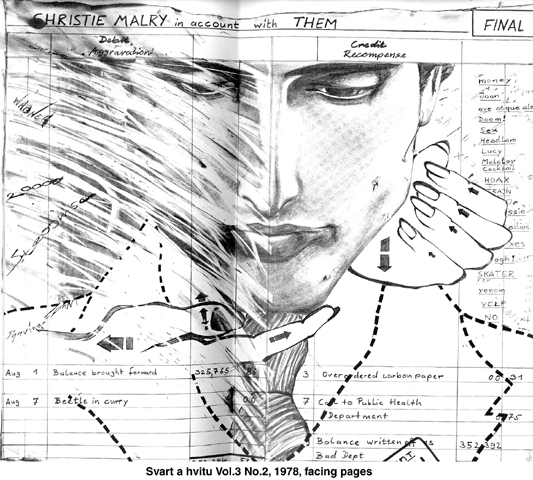 CHRISTIE MALRY in account with THEM
FINAL
Debit
Credit
Aggravation
Recompense
WAGNER
20000
Shaving
money
ave atque
Doom!
Sex
Headlam
Lucy
Molotov
Cocktail
HOAX
SKATER
venom
YELP
NO
Aug 1 Balance brought forward 325,765 86
3 Overordered carbon paper 00 31
Aug 7 Beetle in curry
7 Call to Public Health
Department 0 75
Balance written off as
Bad Dept
352 392
Svart a hvitu Vol.3 No.2, 1978, facing pages